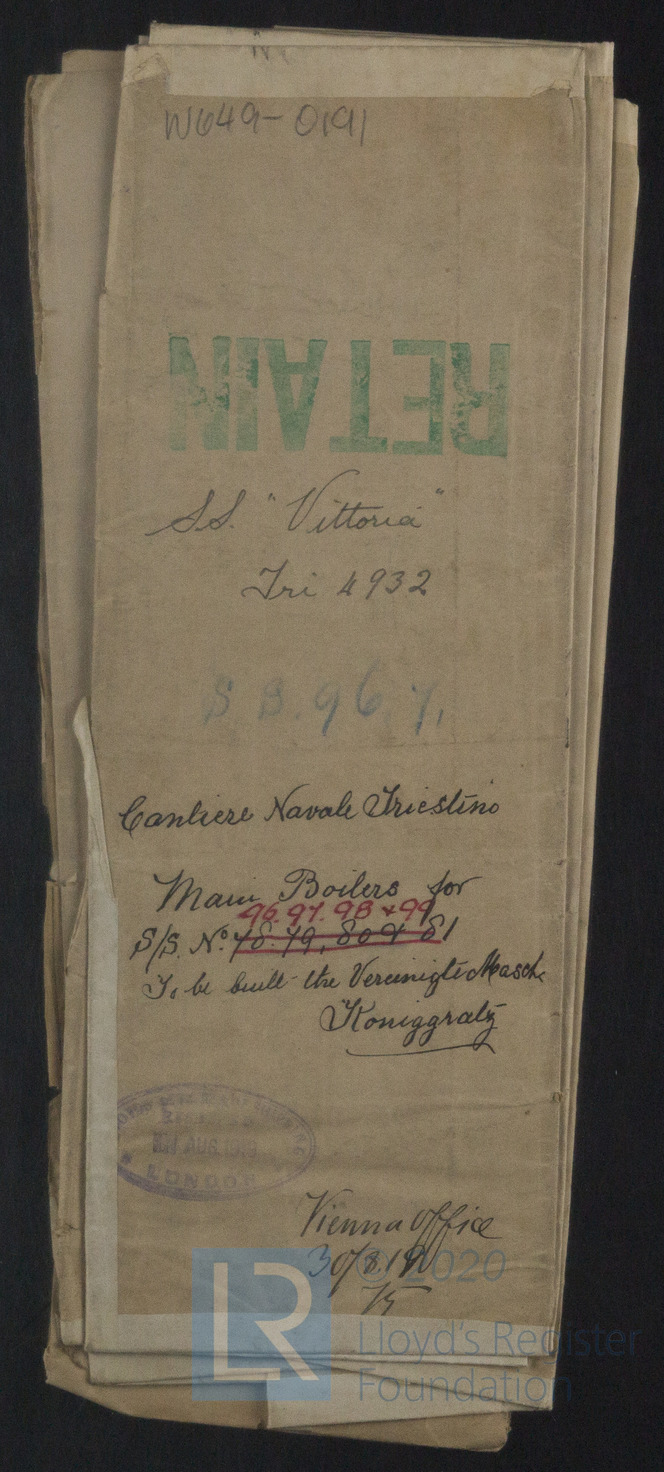 W649-0191
RETAIN
S.S. "Vittoria"
Tri 4932
S B. 967.
Cantiere Navale Triestino
Main Boilers for
96. 97. 98 & 99
S/S. No. 78. 79, 80 & 81
To be built the Vereinigte Masch.
Koniggratz
AUG. 1919
LONDON
Vienna office
30/8.19
© 2020
LR
Lloyd's Register
Foundation